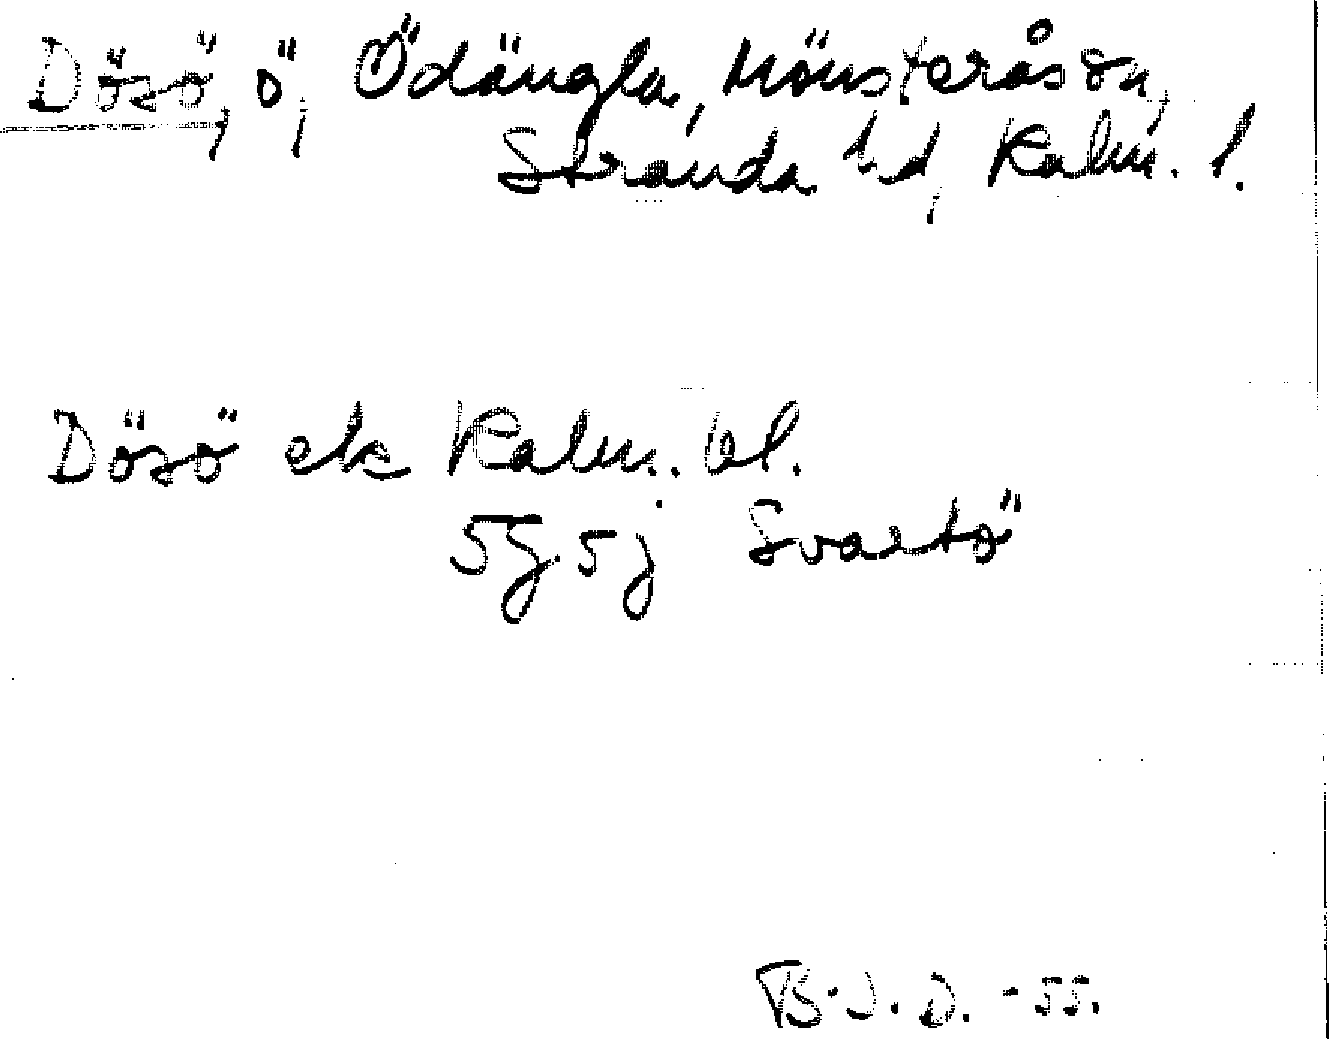 Dösö, ö, Ödängla, Mönsterås sn,
Stranda hd, Kalm. l.
Dösö ek Kalm. bl.
5g.5j Svartö
B.J.D. -55.